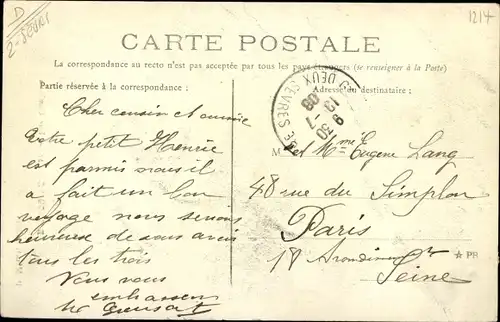 D
2-SEVRES
1214
CARTE POSTALE
La correspondance au recto n'est pas acceptée par tous les pays étrangers (se renseigner à la Poste)
Partie réservée à la correspondance :
Adresse du destinataire ;
DEUX SEVRES
19
30 -7
08
Cher cousin et
Votre petit Henrie
est parmis nous il
a fait un bon
voyage nous serions
heureuse de vous avoir
tous les trois
Vous vous
embrassons
M et Mme Eugene Lang
48 rue du Simplon
Paris
18 Arondim
Seine